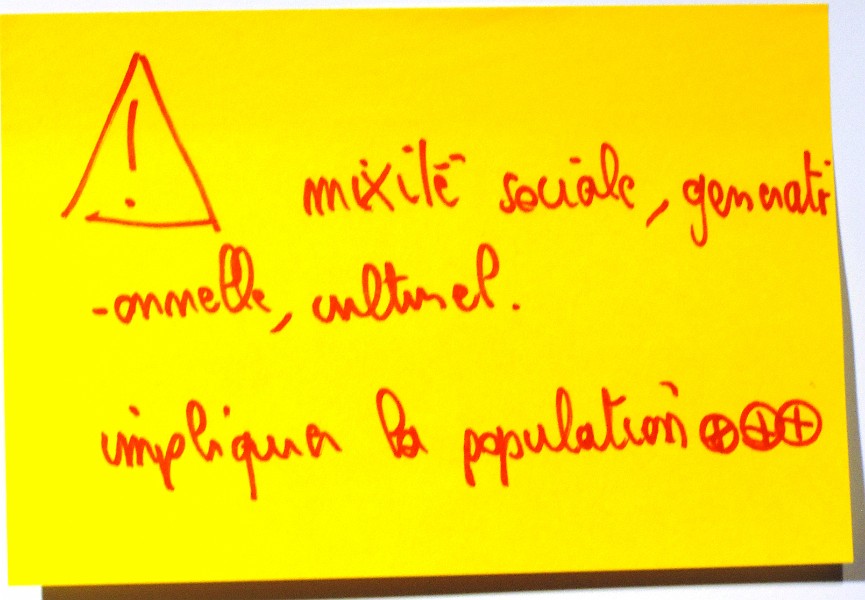 ! mixité sociale, generati
-onnelle, culturel.
impliquer la population ⊕⊕⊕